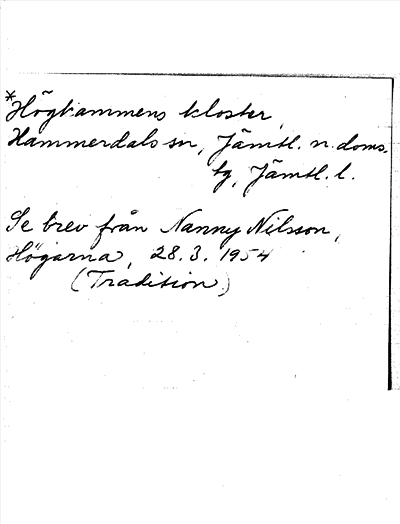 *Högkammens kloster,
Hammerdals sn, Jämtl. n. doms.
tg, Jämtl. l.
Se brev från Nanny Nilsson,
Högarna, 28.3.1954
(Tradition)